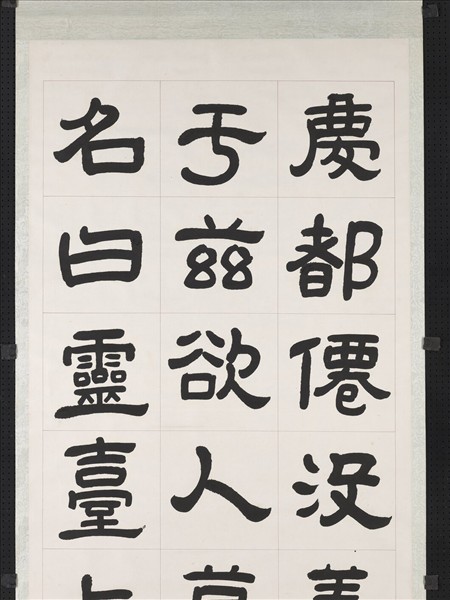 慶都僊没
于兹欲人
名曰靈臺